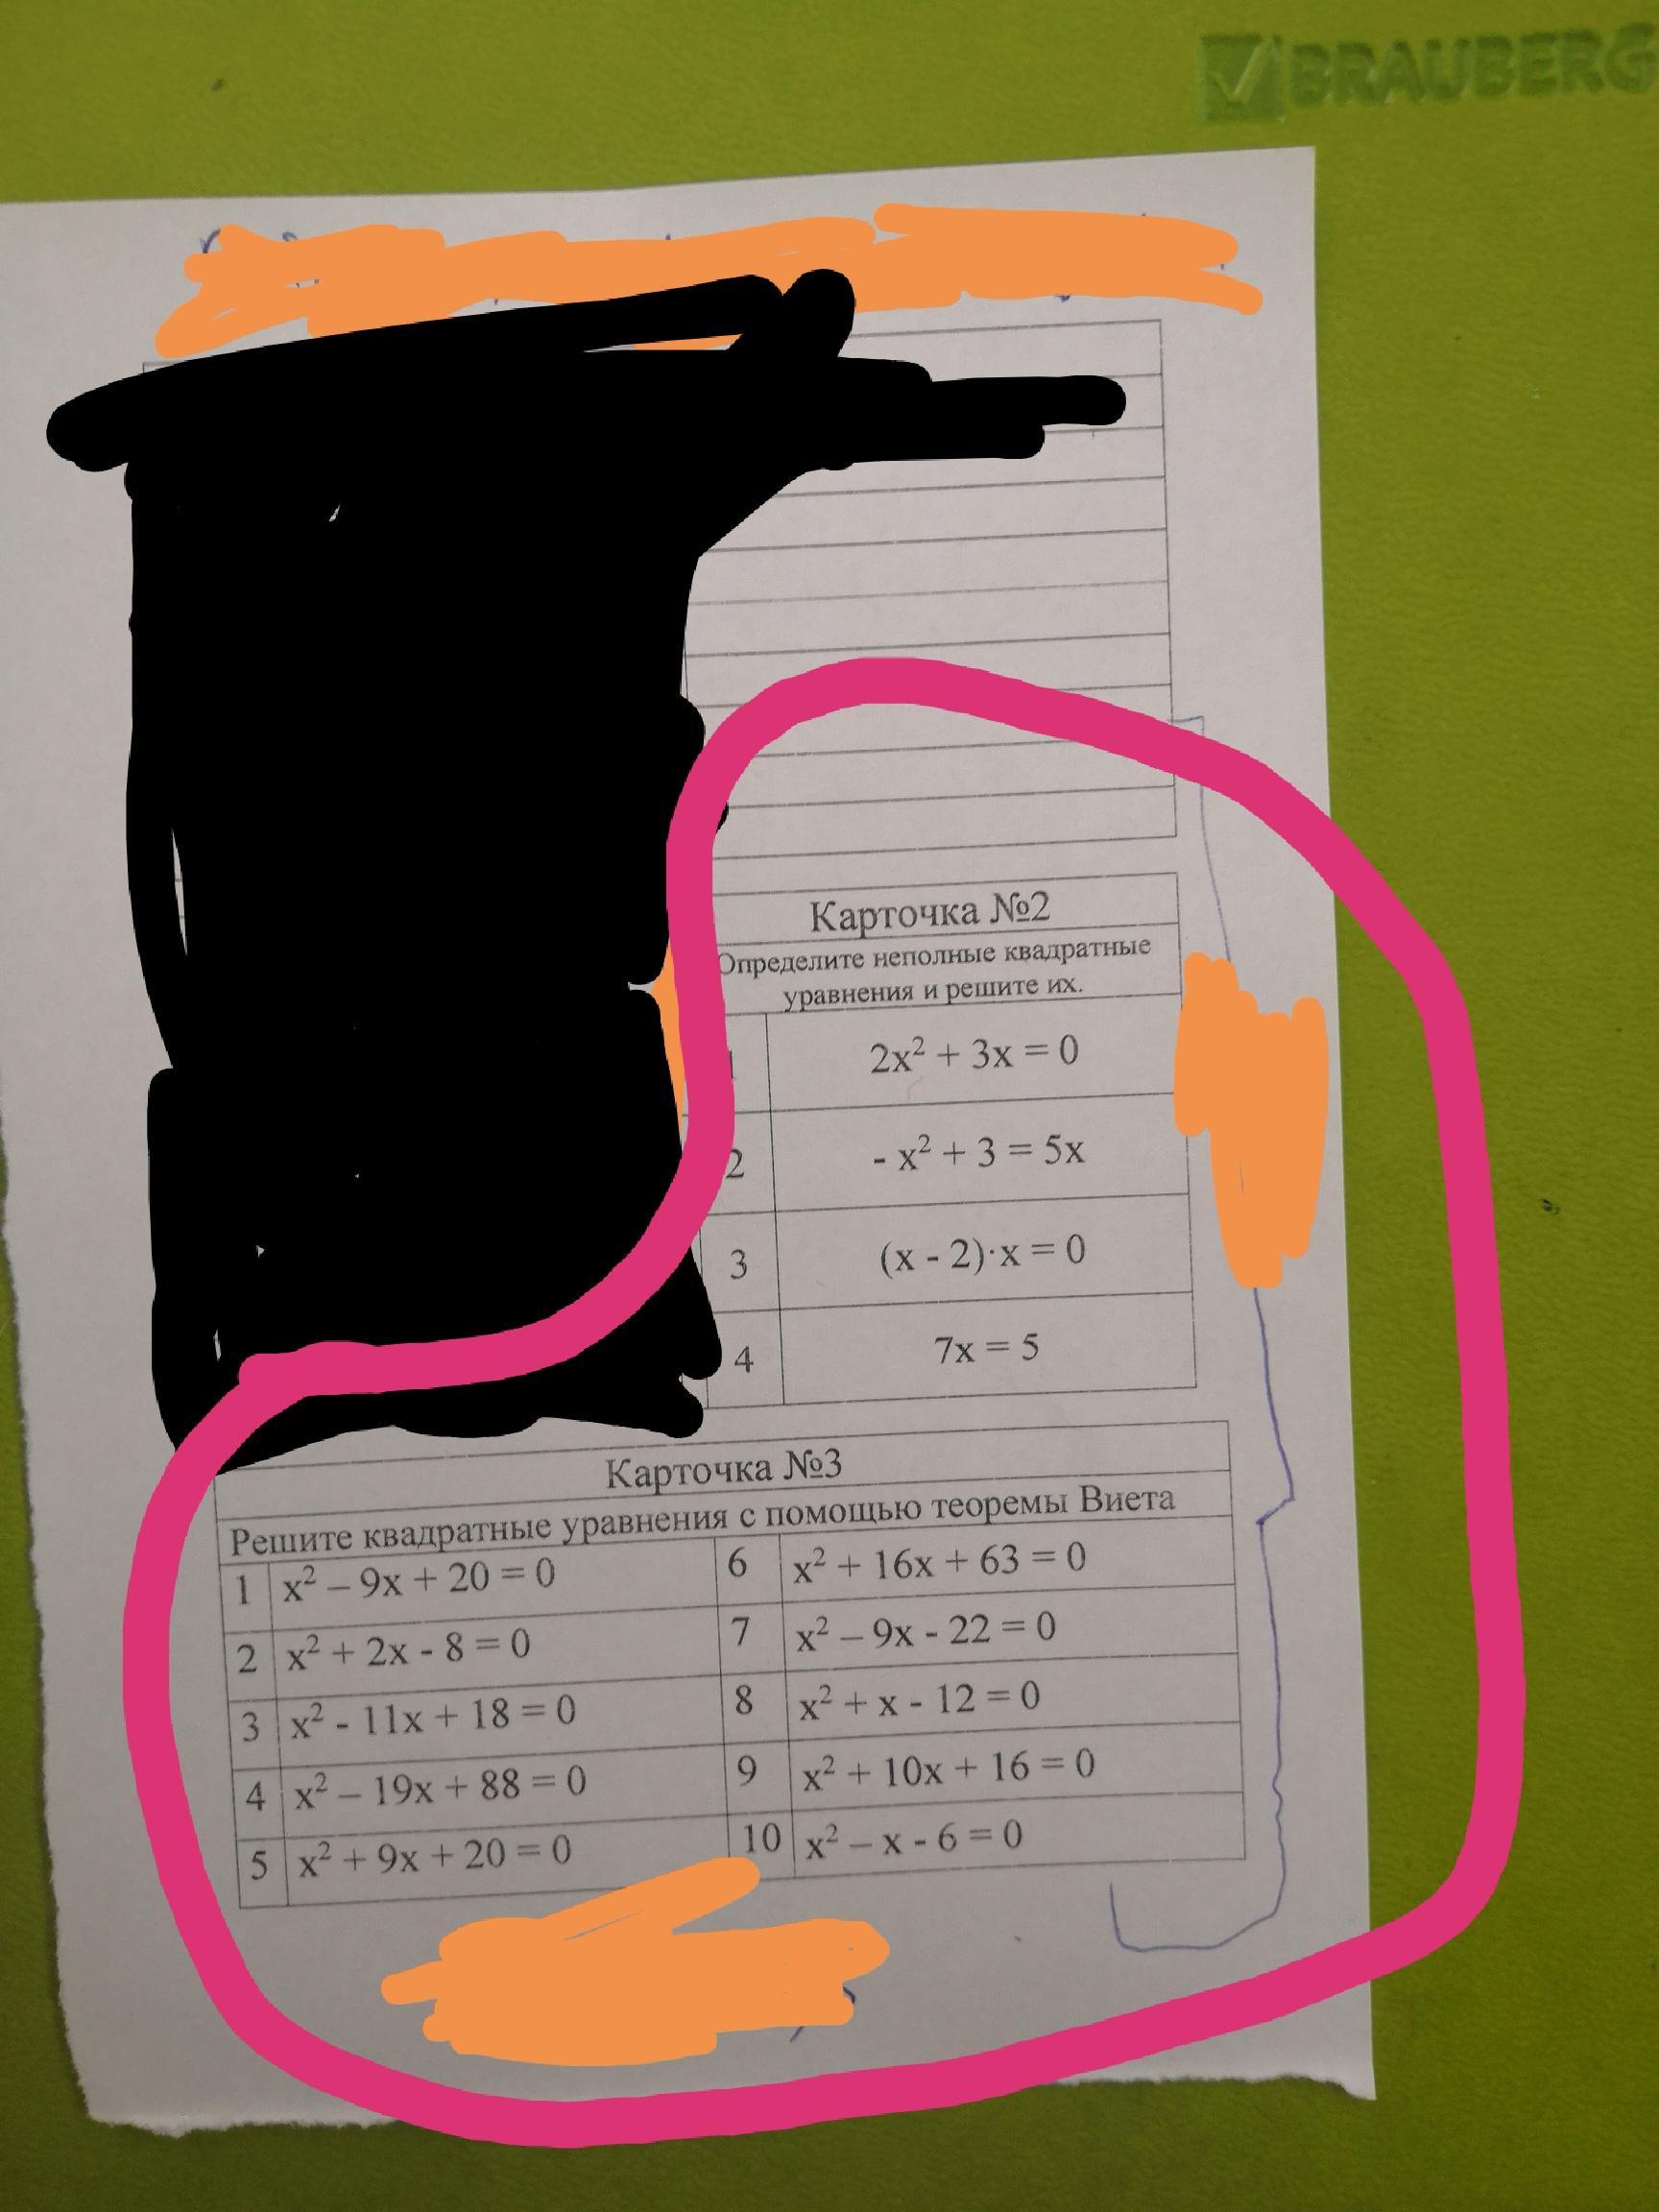 BRAUBERG
Карточка №2
Определите неполные квадратные
уравнения и решите их.
1 2x² + 3x = 0
2 - x² + 3 = 5x
3 (x - 2)·x = 0
4 7x = 5
Карточка №3
Решите квадратные уравнения с помощью теоремы Виета
1 x² – 9x + 20 = 0 6 x² + 16x + 63 = 0
2 x² + 2x - 8 = 0 7 x² – 9x - 22 = 0
3 x² - 11x + 18 = 0 8 x² + x - 12 = 0
4 x² – 19x + 88 = 0 9 x² + 10x + 16 = 0
5 x² + 9x + 20 = 0 10 x² – x - 6 = 0